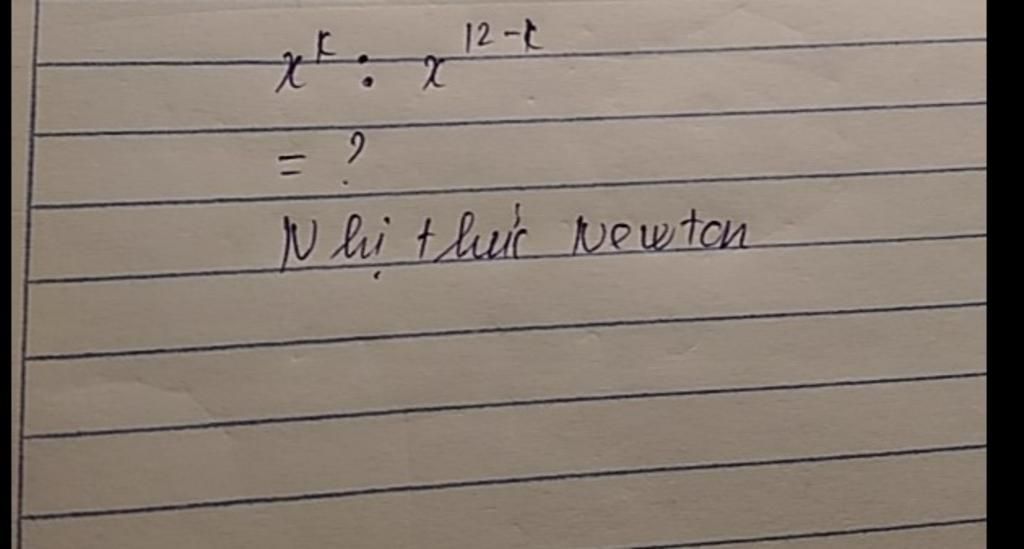 x^k : x^{12-k}
= ?
Nhị thức Newton